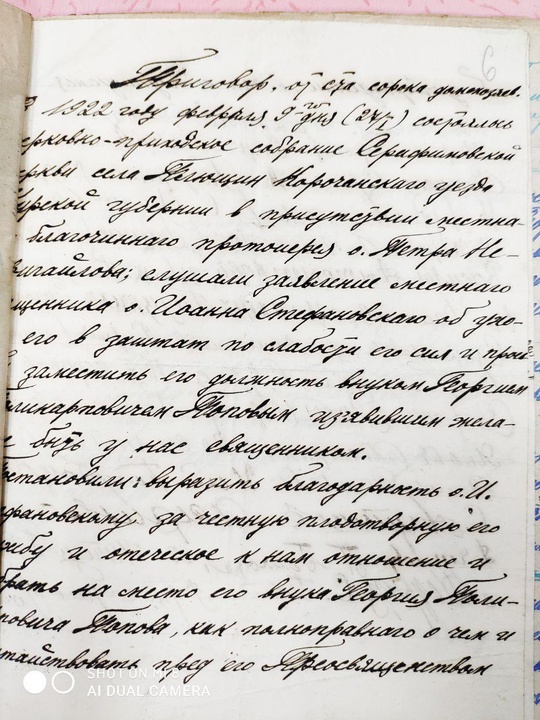 6
Приговор, от ста сорока домохозяев.
1922 году февраля 9го дня (27/I) состоялось
ерковно-приходское собрание Серафимовской
еркви села Корочанскаго уезда
урской губернии в присутствии местна-
благочиннаго протоиерея о. Петра Не-
вигайлова; слушали заявление местнаго
щенника о. Иоанна Стефановскаго об ухо-
его в заштат по слабости его сил и
заместить его должность внуком Георгием
ликарповичем Поповым изъявившим жела-
быть у нас священником.
остановили: выразить благодарность о. И.
фановскому за честную плодотворную его
жбу и отеческое к нам отношение и
брать на место его внука Георгия Поли-
повича Попова, как полноправнаго о чем и
тайствовать пред его Преосвященством
SHOT ON MI 8
AI DUAL CAMERA